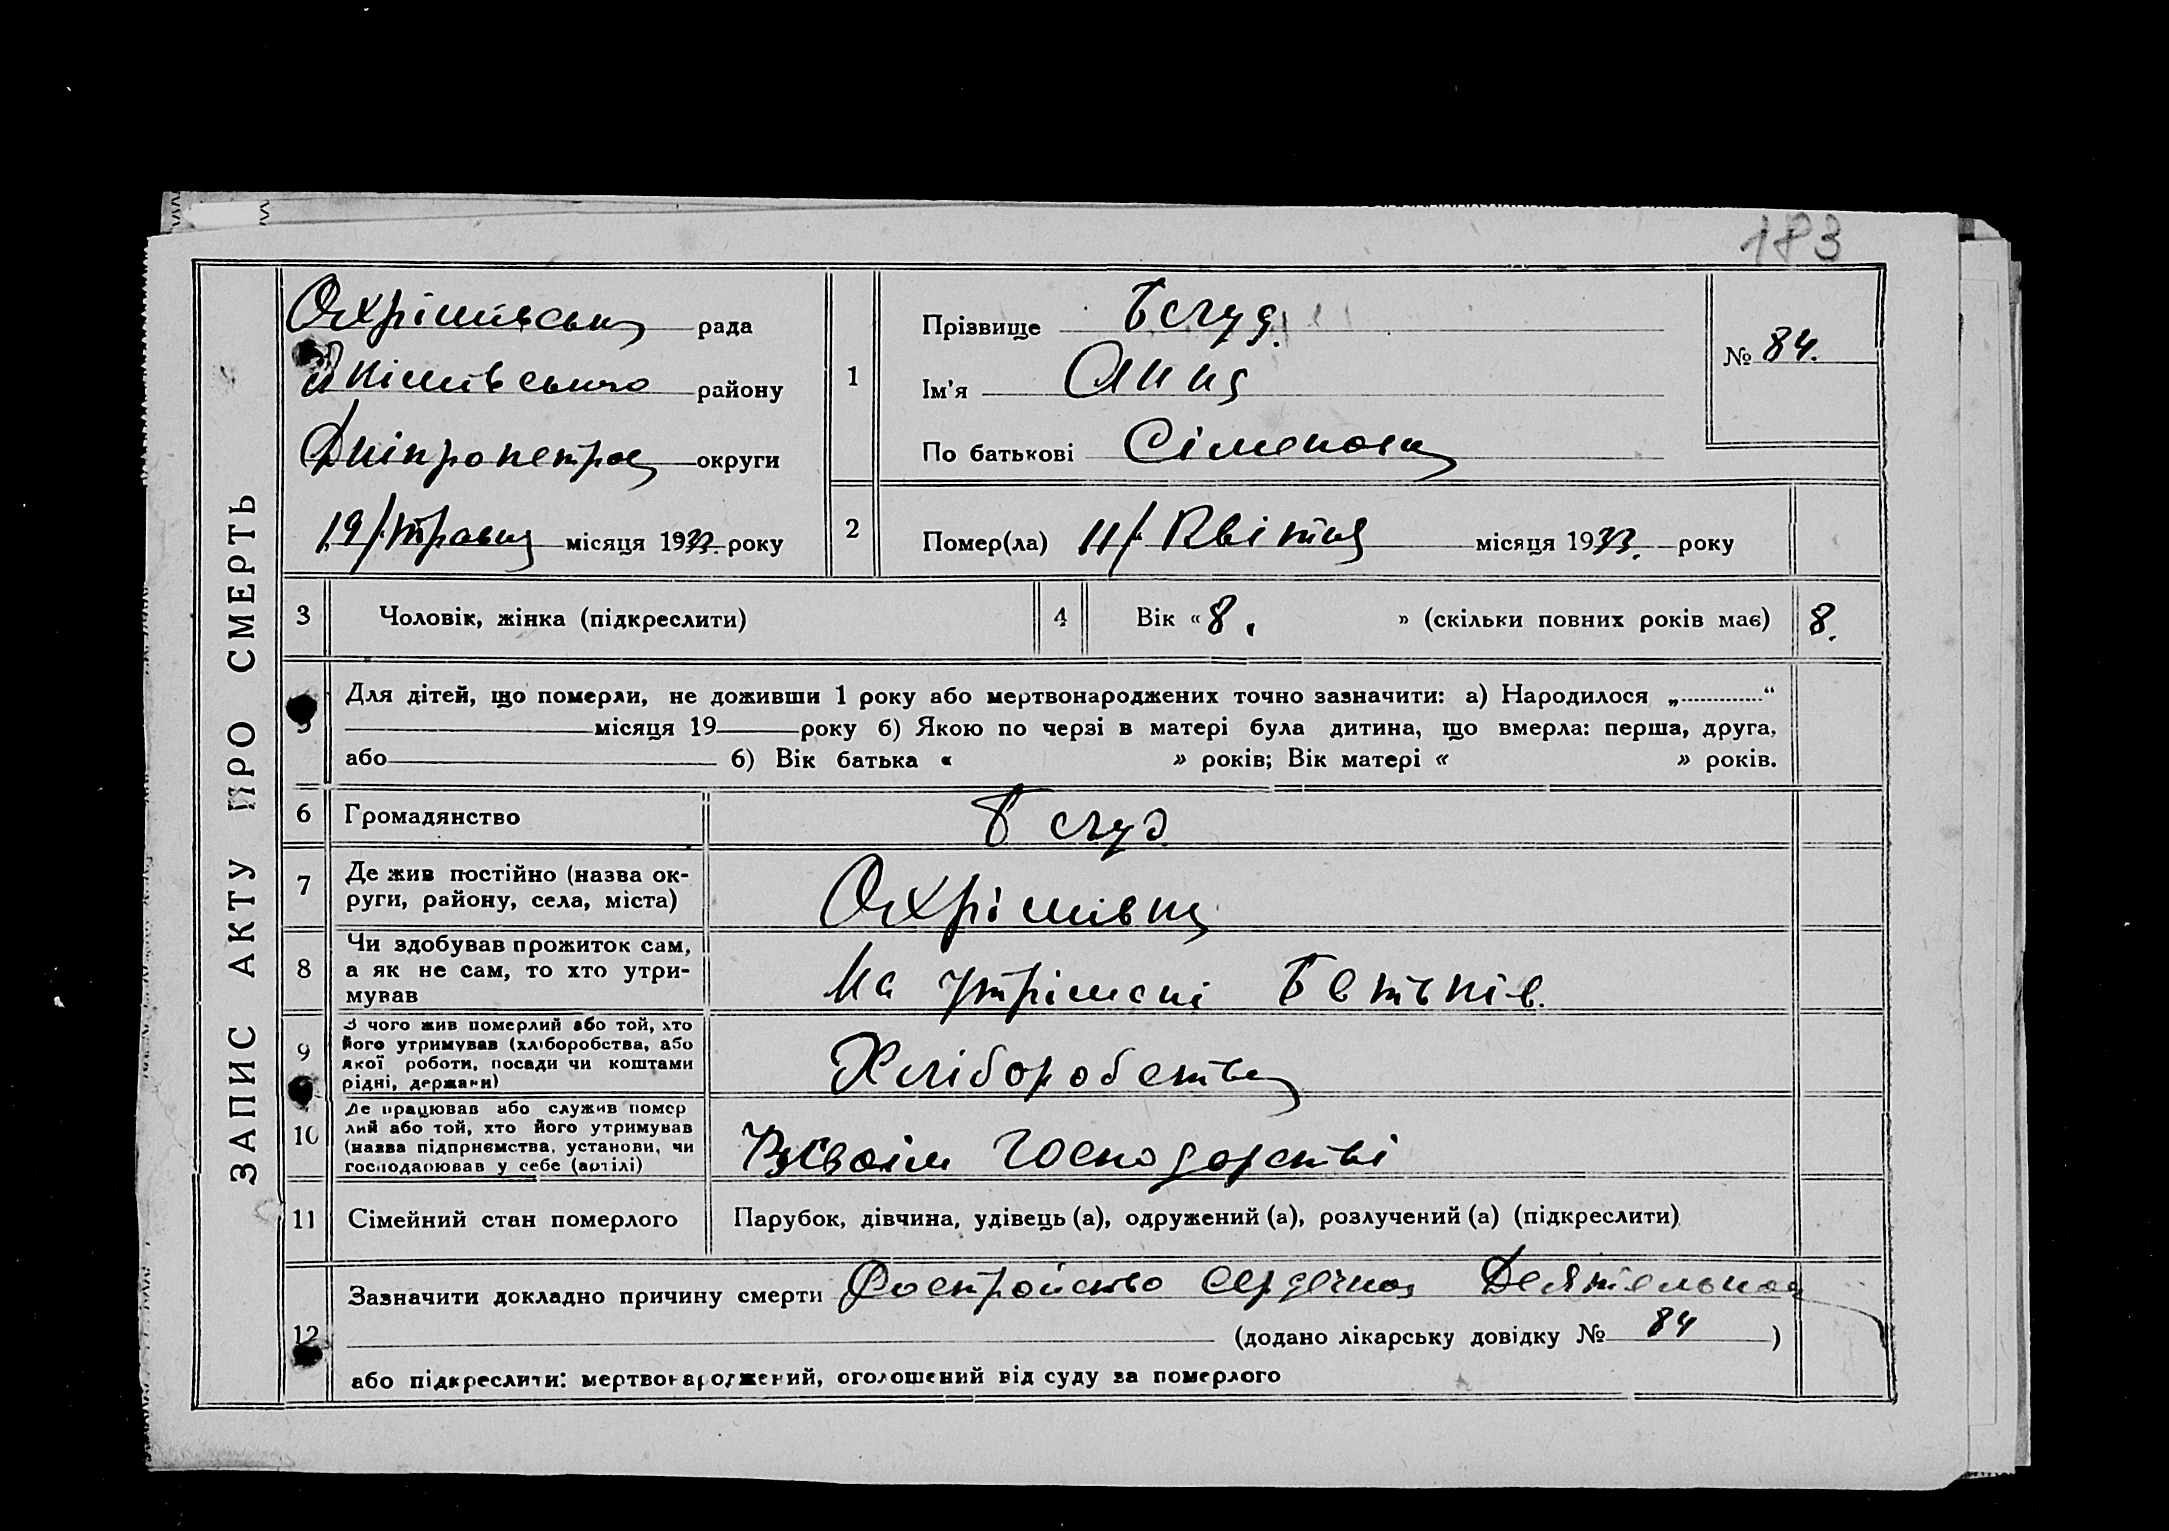 183
ЗАПИС АКТУ ПРО СМЕРТЬ
Охрімівська рада
Якімівського району
Дніпропетров округи
19/Травня місяця 1933 року
1
Прізвище
Ім'я Анна
По батькові Сіменовна
№ 84.
2
Помер(ла) 11/Квітня місяця 1933. року
3 Чоловік, жінка (підкреслити)
4 Вік «8. » (скільки повних років має) 8.
5
Для дітей, що померли, не доживши 1 року або мертвонароджених точно зазначити: а) Народилося „............“
місяця 19 року б) Якою по черзі в матері була дитина, що вмерла: перша, друга,
або б) Вік батька « » років; Вік матері « » років.
6 Громадянство
7
Де жив постійно (назва ок-
руги, району, села, міста)
Охрімівка
8
Чи здобував прожиток сам,
а як не сам, то хто утри-
мував
На утрімані Батьків.
9
З чого жив померлий або той, хто
його утримував (хліборобства, або
якої роботи, посади чи коштами
рідні, держави)
Хліборобства
10
Де працював або служив помер
лий або той, хто його утримував
(назва підприємства, установи, чи
господарював у себе (артілі)
В своїм господарстві
11 Сімейний стан померлого
Парубок, дівчина, удівець (а), одружений (а), розлучений (а) (підкреслити)
12
Зазначити докладно причину смерти Ростройство сердечноя Деятельноя
(додано лікарську довідку № 84 )
або підкреслити: мертвонароджений, оголошений від суду за померлого